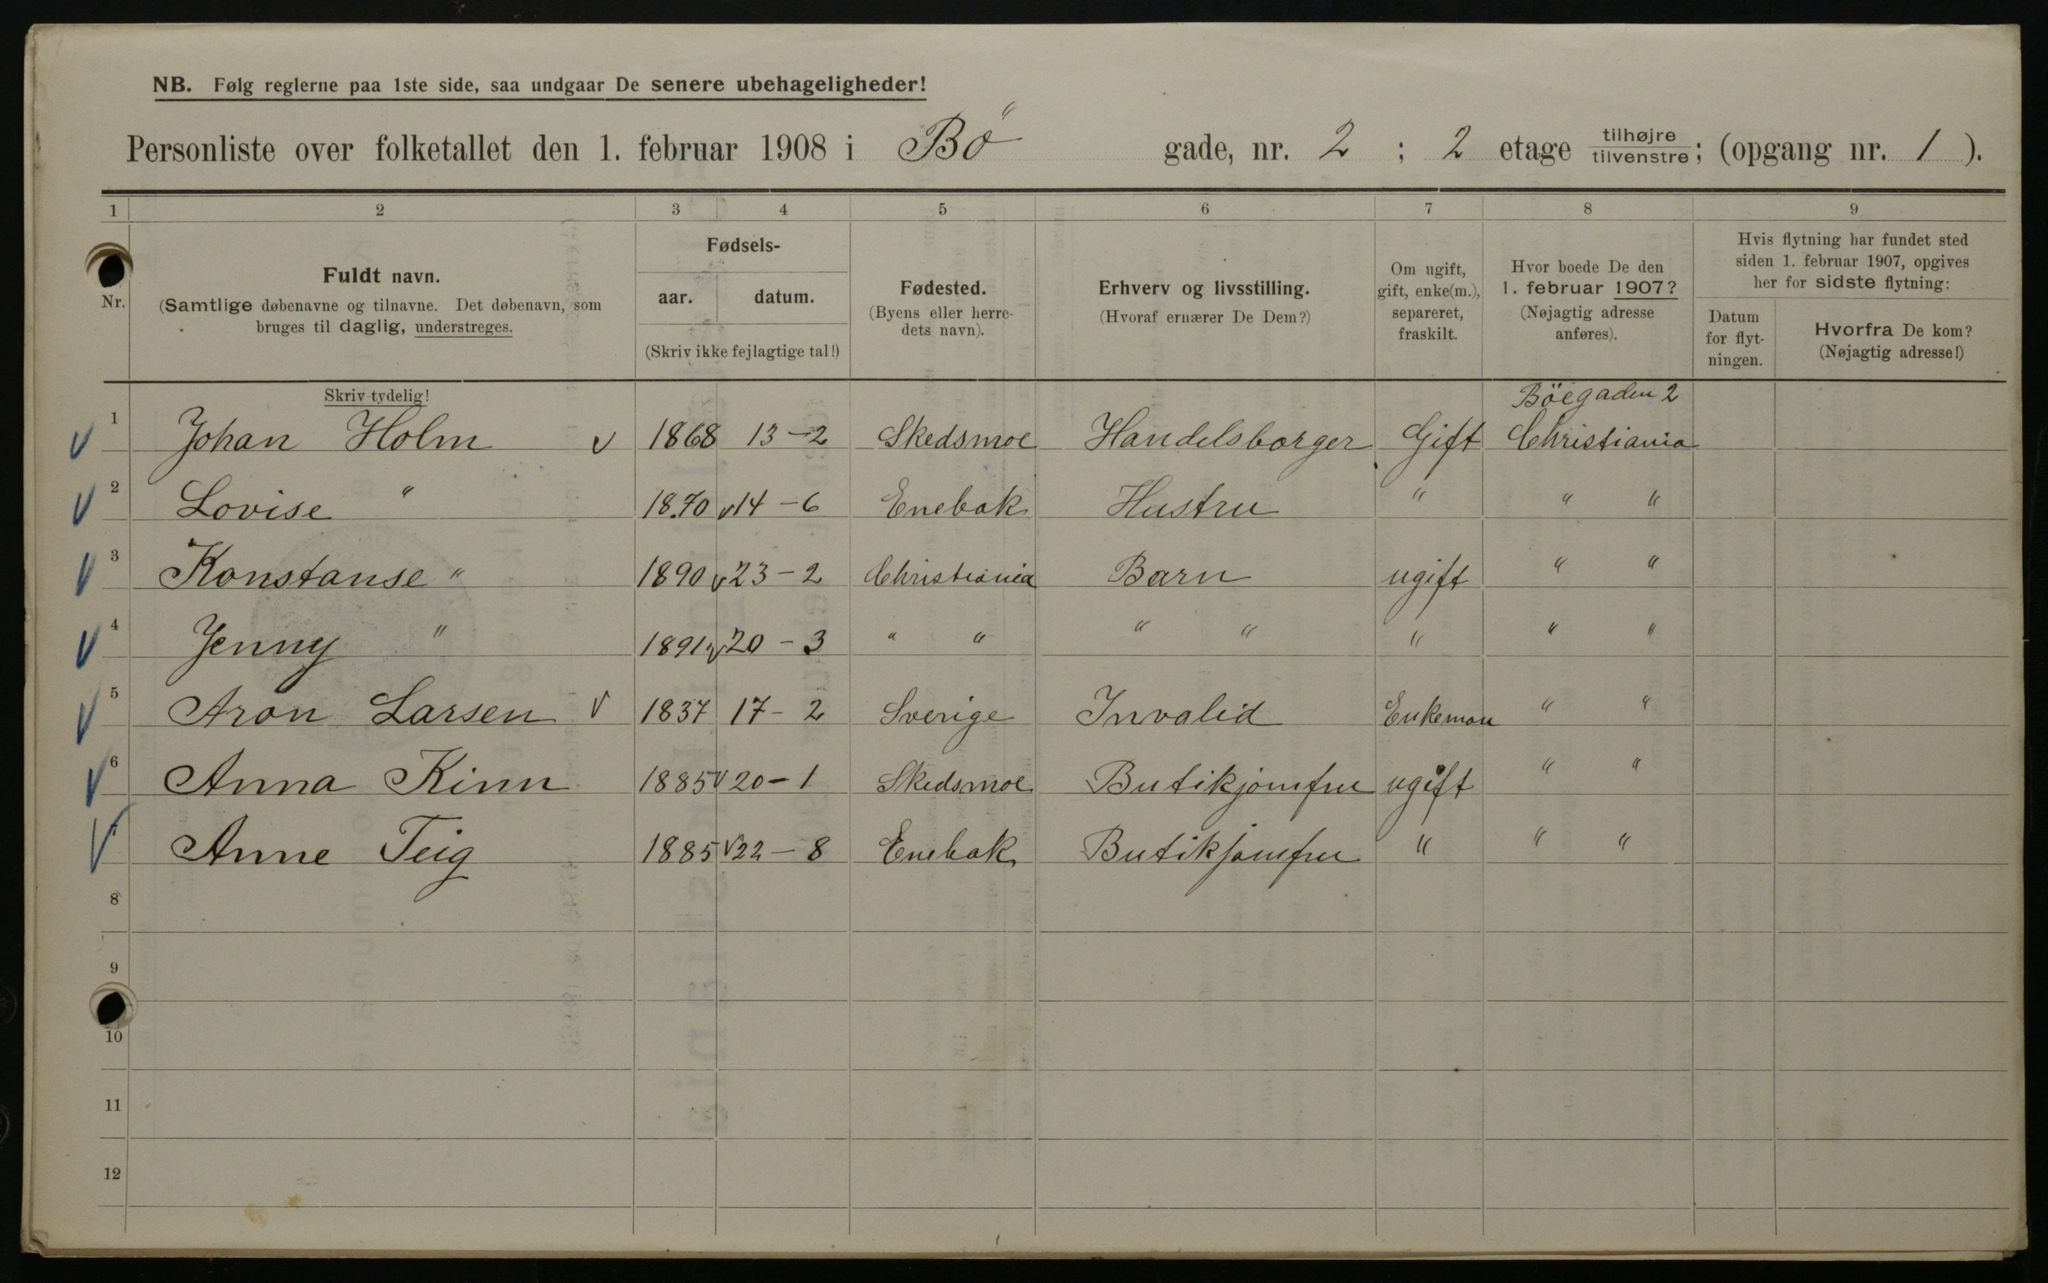 NB. Følg reglerne paa 1ste side, saa undgaar De senere ubehageligheder!
Personliste over folketallet den 1. februar 1908 i Bö gade, nr. 2 ; 2 etage tilhøjre/tilvenstre; (opgang nr. 1 ).
1 2 3 4 5 6 7 8 9
Nr.
Fuldt navn.
(Samtlige døbenavne og tilnavne. Det døbenavn, som
bruges til daglig, understreges.
Fødsels-
aar. datum.
(Skriv ikke fejlagtige tal!)
Fødested.
(Byens eller herre-
dets navn).
Erhverv og livsstilling.
(Hvoraf ernærer De Dem?)
Om ugift,
gift, enke(m.),
separeret,
fraskilt.
Hvor boede De den
1. februar 1907?
(Nøjagtig adresse
anføres).
Hvis flytning har fundet sted
siden 1. februar 1907, opgives
her for sidste flytning:
Datum
for flyt-
ningen.
Hvorfra De kom?
(Nøjagtig adresse!)
Skriv tydelig!
Böegaden 2
1 Johan Holm v 1868 13-2 Skedsmoe Handelsborger Gift Christiania
2 Lovise " 1870 v 14-6 Enebak Hustru " " "
3 Konstanse " 1890 v 23-2 Christiania Barn ugift " "
4 Jenny " 1891 v 20-3 " " " " " " "
5 Aron Larsen v 1837 17-2 Sverige Invalid Enkeman " "
6 Anna Kinn 1885 v 20-1 Skedsmoe Butikjomfru ugift " "
7 Anne Teig 1885 v 22-8 Enebak Butikjomfru " " "
8
9
10
11
12